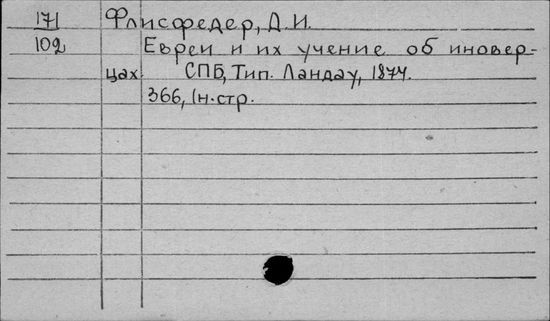 171 Флисфедер, Д.И.
102 Евреи и их учение об иновер-
цах. СПБ, Тип. Ландау, 1874.
366, 1н.стр.